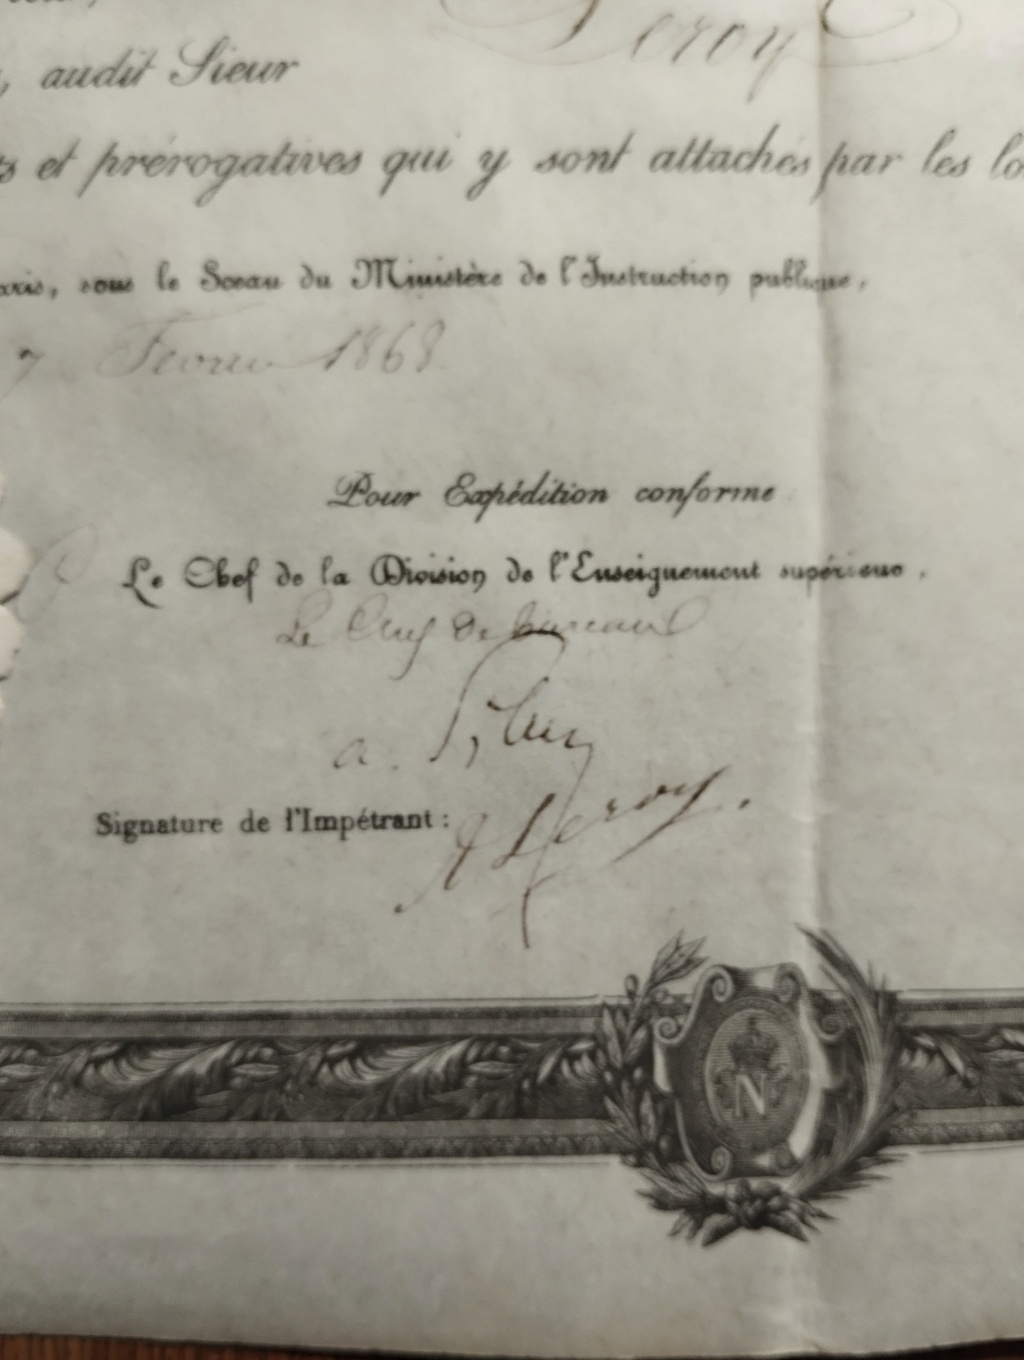 Leroy
, audit Sieur
et prérogatives qui y sont attachés par les lo
aris, sous le Sceau du Ministère de l'Instruction publique,
7 Février 1868
Pour Expédition conforme
Le Chef de la Division de l'Enseignement supérieur,
Le Chef de bureau
a.
Signature de l'Impétrant :
Leroy.
N